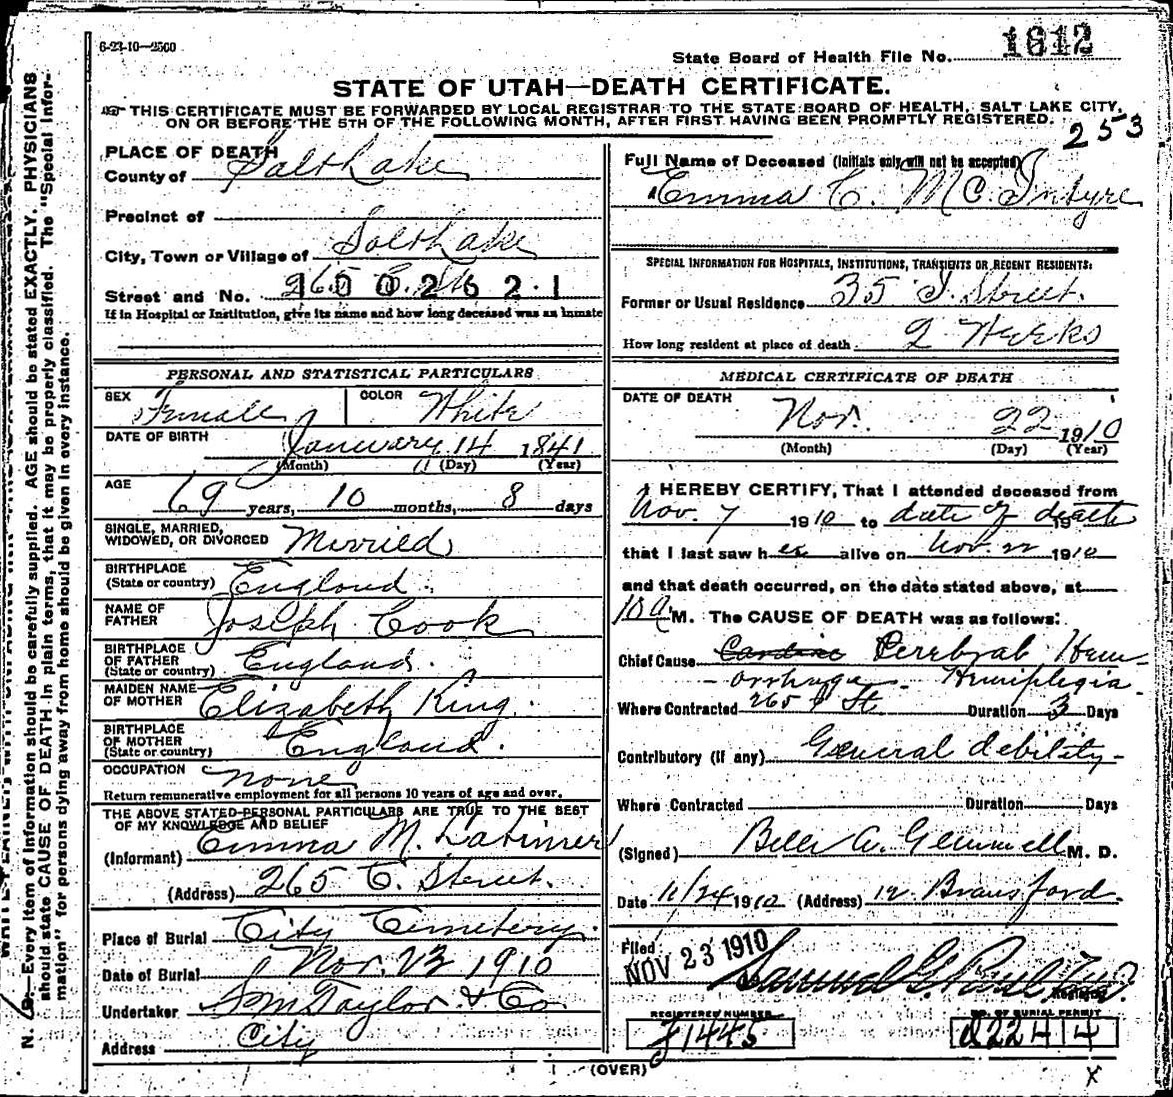 6-23-10—2500
State Board of Health File No. 1612
STATE OF UTAH—DEATH CERTIFICATE.
THIS CERTIFICATE MUST BE FORWARDED BY LOCAL REGISTRAR TO THE STATE BOARD OF HEALTH, SALT LAKE CITY,
ON OR BEFORE THE 5TH OF THE FOLLOWING MONTH, AFTER FIRST HAVING BEEN PROMPTLY REGISTERED.
253
PLACE OF DEATH
County of Salt Lake
Precinct of
City, Town or Village of Salt Lake
Street and No. 265 C. St.
1002621
If in Hospital or Institution, give its name and how long deceased was an inmate
PERSONAL AND STATISTICAL PARTICULARS
SEX Female COLOR White
DATE OF BIRTH January 14 1841
(Month) (Day) (Year)
AGE 69 years, 10 months, 8 days
SINGLE, MARRIED,
WIDOWED, OR DIVORCED Married
BIRTHPLACE
(State or country) England
NAME OF
FATHER Joseph Cook
BIRTHPLACE
OF FATHER
(State or country) England.
MAIDEN NAME
OF MOTHER Elizabeth King.
BIRTHPLACE
OF MOTHER
(State or country) England.
OCCUPATION none
Return remunerative employment for all persons 10 years of age and over.
THE ABOVE STATED PERSONAL PARTICULARS ARE TRUE TO THE BEST
OF MY KNOWLEDGE AND BELIEF
(Informant) Emma M. Latimer
(Address) 265 C. Street.
Place of Burial City Cemetery.
Date of Burial Nov. 23 1910
Undertaker S M Taylor & Co
Address City
Full Name of Deceased (Initials only will not be accepted)
Emma C. McIntyre
SPECIAL INFORMATION FOR HOSPITALS, INSTITUTIONS, TRANSIENTS OR RECENT RESIDENTS:
Former or Usual Residence 35 I. Street.
How long resident at place of death 2 Weeks
MEDICAL CERTIFICATE OF DEATH
DATE OF DEATH
Nov. 22 1910
(Month) (Day) (Year)
I HEREBY CERTIFY, That I attended deceased from
Nov. 7 1910 to date of death 19
that I last saw her alive on Nov. 22 1910
and that death occurred, on the date stated above, at
10 a M. The CAUSE OF DEATH was as follows:
Chief Cause Cardiac Cerebral Hem-
orrhage - Hemiplegia.
Where Contracted 265 C St Duration 3 Days
Contributory (if any) General debility-
Where Contracted Duration Days
(Signed) Belle A. Gemmell M. D.
Date 11/24 1910 (Address) 12 Bransford.
Filed
NOV 23 1910
Samuel G. Paul
Registrar
REGISTERED NUMBER
J1445
NO. OF BURIAL PERMIT
d22414
(OVER)
X
N. B.—Every item of information should be carefully supplied. AGE should be stated EXACTLY. PHYSICIANS
should state CAUSE OF DEATH in plain terms, that it may be properly classified. The "Special Infor-
mation" for persons dying away from home should be given in every instance.